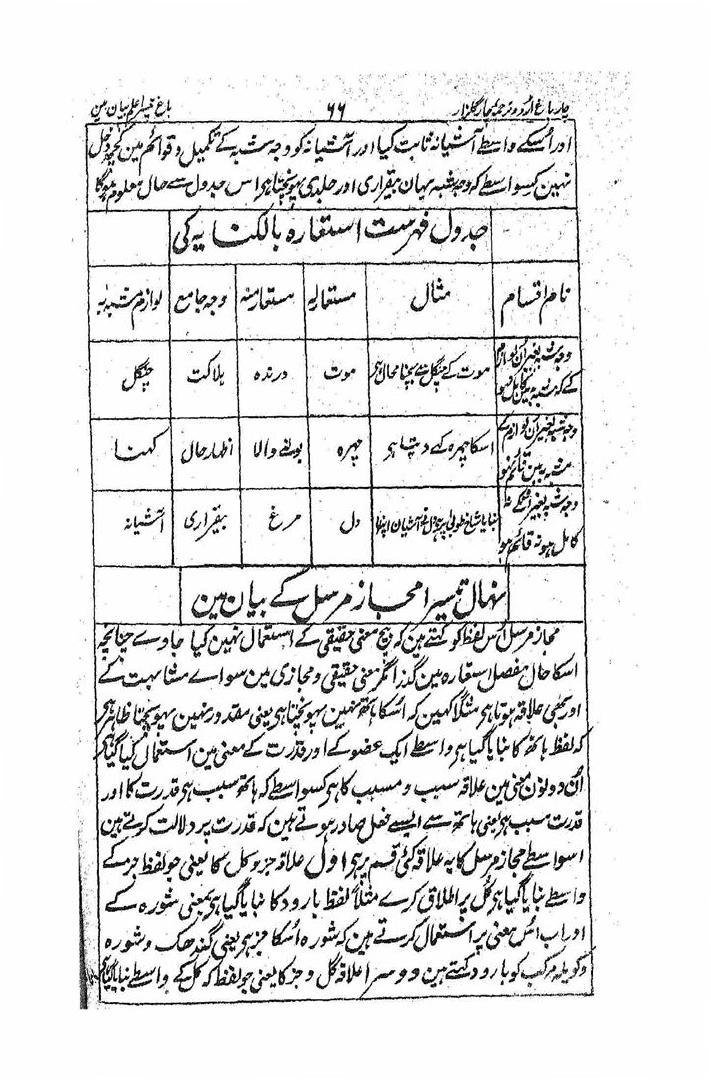 چار باغ اردو ترجمہ چار گلزار ۶۶ باغ تیسرا علم بیان مین
اور اسکے واسطے آشیانہ ثابت کیا اور آشیانہ کو وجہ شبہ کے تکمیل و قوائم مین کچھ دخل
نہین کسواسطے کہ وجہ شبہ یہان بیقراری اور جلدی پہونچنا ہر اس جدول سے حال معلوم ہوگا
جدول فہرست استعارہ بالکنایہ کی
نام اقسام مثال مستعارلہ مستعارمنہ وجہ جامع لوازم مشبہ بہ
وجہ شبہ بغیر ان لوازم
کے کہ مشبہ مین کامل نہو موت کے چنگل سے بچنا محال ہر موت درندہ ہلاکت چنگل
وجہ شبہ بغیر ان لوازم کے
مشبہ مین قائم نہو اسکا چہرہ کہے دیتا ہر چہرہ بولنے والا اظہار حال کہنا
وجہ شبہ بغیر اسکے نہ
کامل ہو نہ قائم ہو بنایا شاخ طوبی پر دل نے آشیان اپنا دل مرغ بیقراری آشیانہ
نہال تیسرا مجاز مرسل کے بیان مین
مجاز مرسل اُس لفظ کو کہتے ہین کہ بیچ معنی حقیقی کے استعمال نہین کیا جاوے چنانچہ
اسکا حال مفصل استعارہ مین گذرا مگر معنی حقیقی و مجازی مین سواے مشابہت کے
اور بھی علاقہ ہوتا ہر مثلاً کہین کہ اُسکا ہاتھ نہین پہونچتا ہر یعنی مقدور نہین پہونچتا ظاہر ہر
کہ لفظ ہاتھ کا بنایا گیا ہر واسطے ایک عضو کے اور قدرت کے معنی مین استعمال کیا گیا ہر
اُن دونون معنی مین علاقہ سبب و مسبب کا ہر کسواسطے کہ ہاتھ سبب ہر قدرت کا اور
قدرت سبب ہر یعنی ہاتھ سے ایسے فعل صادر ہوتے ہین کہ قدرت پر دلالت کرتے ہین
اسواسطے مجاز مرسل کا یہ علاقہ کئی قسم پر ہر اول علاقہ جز و کل کا یعنی جو لفظ جز کے
واسطے بنایا گیا ہر کل پر اطلاق کرے مثلاً لفظ بارود کا بنایا گیا ہر بمعنی شورہ کے
اور اب اُس معنی پر استعمال کرتے ہین کہ شورہ اُسکا جز ہر یعنی گندھک و شورہ
و کویلہ مرکب کو بارود کہتے ہین دوسرا علاقہ کل و جز کا یعنی جو لفظ کہ کل کے واسطے بنایا گیا ہر